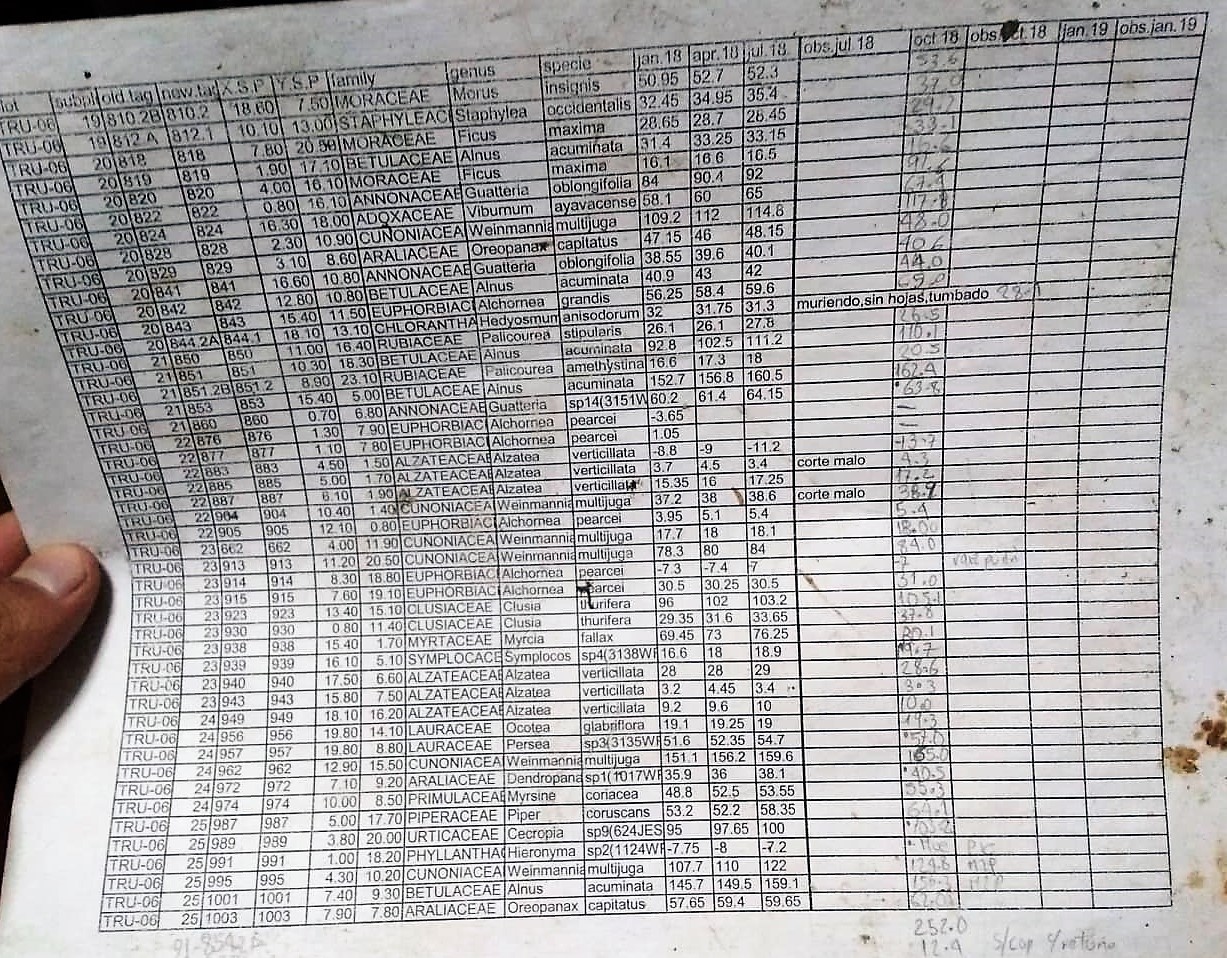 lot subpl old.tag new.tag X.S.P Y.S.P family genus specie jan.18 apr.18 jul.18 obs.jul 18 oct.18 obs.oct.18 jan.19 obs.jan.19
TRU-06 19 810.2B 810.2 18.60 7.50 MORACEAE Morus insignis 50.95 52.7 52.3 53.6
TRU-06 19 812 A 812.1 10.10 13.00 STAPHYLEAC Staphylea occidentalis 32.45 34.95 35.4 37.0
TRU-06 20 818 818 7.80 20.50 MORACEAE Ficus maxima 28.65 28.7 28.45 29.7
TRU-06 20 819 819 1.90 17.10 BETULACEAE Alnus acuminata 31.4 33.25 33.15 33.1
TRU-06 20 820 820 4.00 16.10 MORACEAE Ficus maxima 16.1 16.6 16.5 16.6
TRU-06 20 822 822 0.80 16.10 ANNONACEAE Guatteria oblongifolia 84 90.4 92
TRU-06 20 824 824 16.30 18.00 ADOXACEAE Viburnum ayavacense 58.1 60 65
TRU-06 20 828 828 2.30 10.90 CUNONIACEA Weinmannia multijuga 109.2 112 114.8 117.8
TRU-06 20 829 829 3.10 8.60 ARALIACEAE Oreopanax capitatus 47.15 46 48.15 48.0
TRU-06 20 841 841 16.60 10.80 ANNONACEAE Guatteria oblongifolia 38.55 39.6 40.1 40.6
TRU-06 20 842 842 12.80 10.80 BETULACEAE Alnus acuminata 40.9 43 42 44.0
TRU-06 20 843 843 15.40 11.50 EUPHORBIAC Alchornea grandis 56.25 58.4 59.6
TRU-06 20 844.2A 844.1 18.10 13.10 CHLORANTHA Hedyosmum anisodorum 32 31.75 31.3 muriendo,sin hojas,tumbado
TRU-06 21 850 850 11.00 16.40 RUBIACEAE Palicourea stipularis 26.1 26.1 27.8 26.5
TRU-06 21 851 851 10.30 18.30 BETULACEAE Alnus acuminata 92.8 102.5 111.2 110.1
TRU-06 21 851.2B 851.2 8.90 23.10 RUBIACEAE Palicourea amethystina 16.6 17.3 18 20.5
TRU-06 21 853 853 15.40 5.00 BETULACEAE Alnus acuminata 152.7 156.8 160.5 162.4
TRU-06 21 860 860 0.70 6.80 ANNONACEAE Guatteria sp14(3151W 60.2 61.4 64.15 63.8
TRU-06 22 876 876 1.30 7.90 EUPHORBIAC Alchornea pearcei -3.65 —
TRU-06 22 877 877 1.10 7.80 EUPHORBIAC Alchornea pearcei 1.05 —
TRU-06 22 883 883 4.50 1.50 ALZATEACEAE Alzatea verticillata -8.8 -9 -11.2 -13.7
TRU-06 22 885 885 5.00 1.70 ALZATEACEAE Alzatea verticillata 3.7 4.5 3.4 corte malo 4.3
TRU-06 22 887 887 6.10 1.90 ALZATEACEAE Alzatea verticillata 15.35 16 17.25 17.2
TRU-06 22 904 904 10.40 1.40 CUNONIACEA Weinmannia multijuga 37.2 38 38.6 corte malo 38.9
TRU-06 22 905 905 12.10 0.80 EUPHORBIAC Alchornea pearcei 3.95 5.1 5.4 5.4
TRU-06 23 662 662 4.00 11.90 CUNONIACEA Weinmannia multijuga 17.7 18 18.1 18.00
TRU-06 23 913 913 11.20 20.50 CUNONIACEA Weinmannia multijuga 78.3 80 84 84.0
TRU-06 23 914 914 8.30 18.80 EUPHORBIAC Alchornea pearcei -7.3 -7.4 -7 -7
TRU-06 23 915 915 7.60 19.10 EUPHORBIAC Alchornea pearcei 30.5 30.25 30.5 31.0
TRU-06 23 923 923 13.40 15.10 CLUSIACEAE Clusia thurifera 96 102 103.2 105.1
TRU-06 23 930 930 0.80 11.40 CLUSIACEAE Clusia thurifera 29.35 31.6 33.65 37.8
TRU-06 23 938 938 15.40 1.70 MYRTACEAE Myrcia fallax 69.45 73 76.25
TRU-06 23 939 939 16.10 5.10 SYMPLOCACE Symplocos sp4(3138WF 16.6 18 18.9 19.7
TRU-06 23 940 940 17.50 6.60 ALZATEACEAE Alzatea verticillata 28 28 29 28.6
TRU-06 23 943 943 15.80 7.50 ALZATEACEAE Alzatea verticillata 3.2 4.45 3.4 3.3
TRU-06 24 949 949 18.10 16.20 ALZATEACEAE Alzatea verticillata 9.2 9.6 10 10.0
TRU-06 24 956 956 19.80 14.10 LAURACEAE Ocotea glabriflora 19.1 19.25 19 19.3
TRU-06 24 957 957 19.80 8.80 LAURACEAE Persea sp3(3135WF 51.6 52.35 54.7 57.0
TRU-06 24 962 962 12.90 15.50 CUNONIACEA Weinmannia multijuga 151.1 156.2 159.6 165.0
TRU-06 24 972 972 7.10 9.20 ARALIACEAE Dendropana sp1(1017WF 35.9 36 38.1 40.5
TRU-06 24 974 974 10.00 8.50 PRIMULACEAE Myrsine coriacea 48.8 52.5 53.55 55.3
TRU-06 25 987 987 5.00 17.70 PIPERACEAE Piper coruscans 53.2 52.2 58.35 64.1
TRU-06 25 989 989 3.80 20.00 URTICACEAE Cecropia sp9(624JES 95 97.65 100
TRU-06 25 991 991 1.00 18.20 PHYLLANTHA Hieronyma sp2(1124WF -7.75 -8 -7.2
TRU-06 25 995 995 4.30 10.20 CUNONIACEA Weinmannia multijuga 107.7 110 122
TRU-06 25 1001 1001 7.40 9.30 BETULACEAE Alnus acuminata 145.7 149.5 159.1
TRU-06 25 1003 1003 7.90 7.80 ARALIACEAE Oreopanax capitatus 57.65 59.4 59.65 62.0
252.0
12.4 s/cop